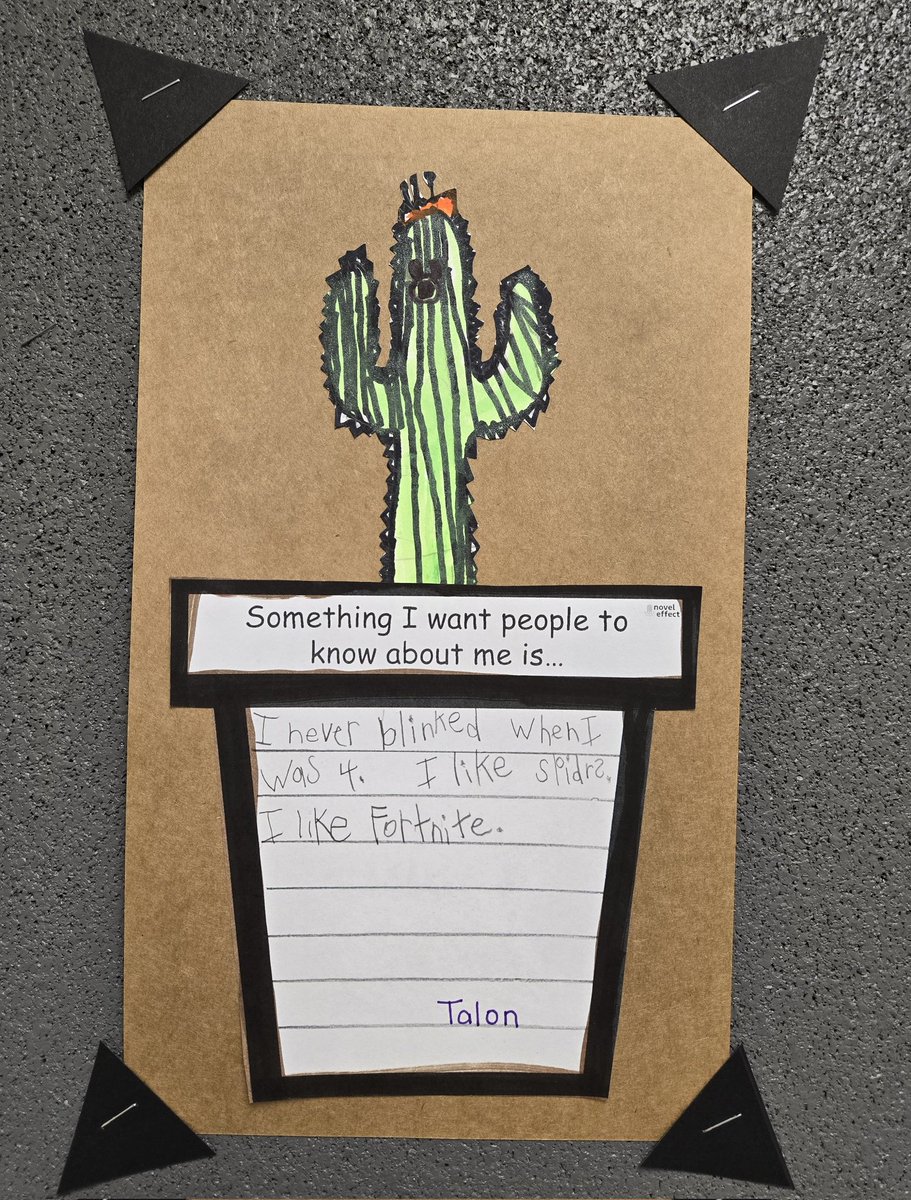 Something I want people to
know about me is...
novel
effect
I never blinked when I
was 4. I like spidrs.
I like Fortnite.
Talon